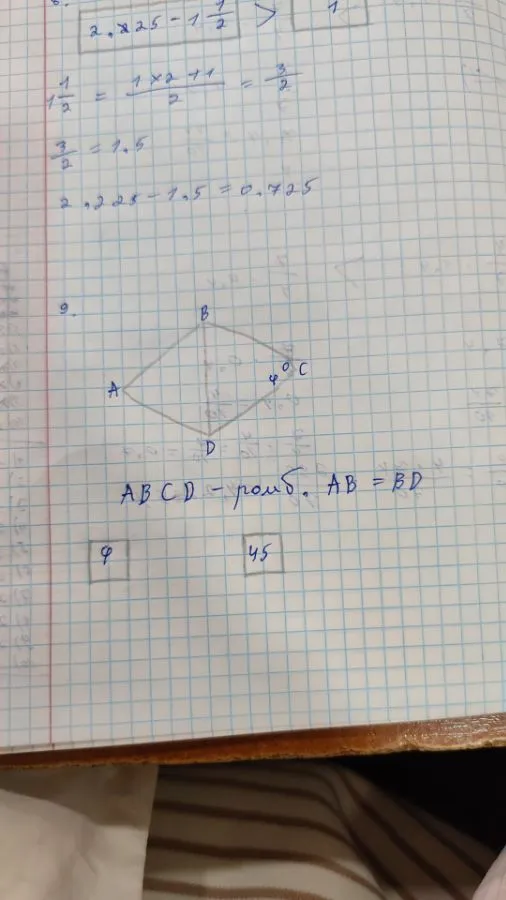 2.225 - 1 1/2 > 1
1 1/2 = 1×2+1/2 = 3/2
3/2 = 1.5
2.225 - 1.5 = 0.725
9.
B
φ° C
A
D
ABCD - ромб. AB = BD
φ 45